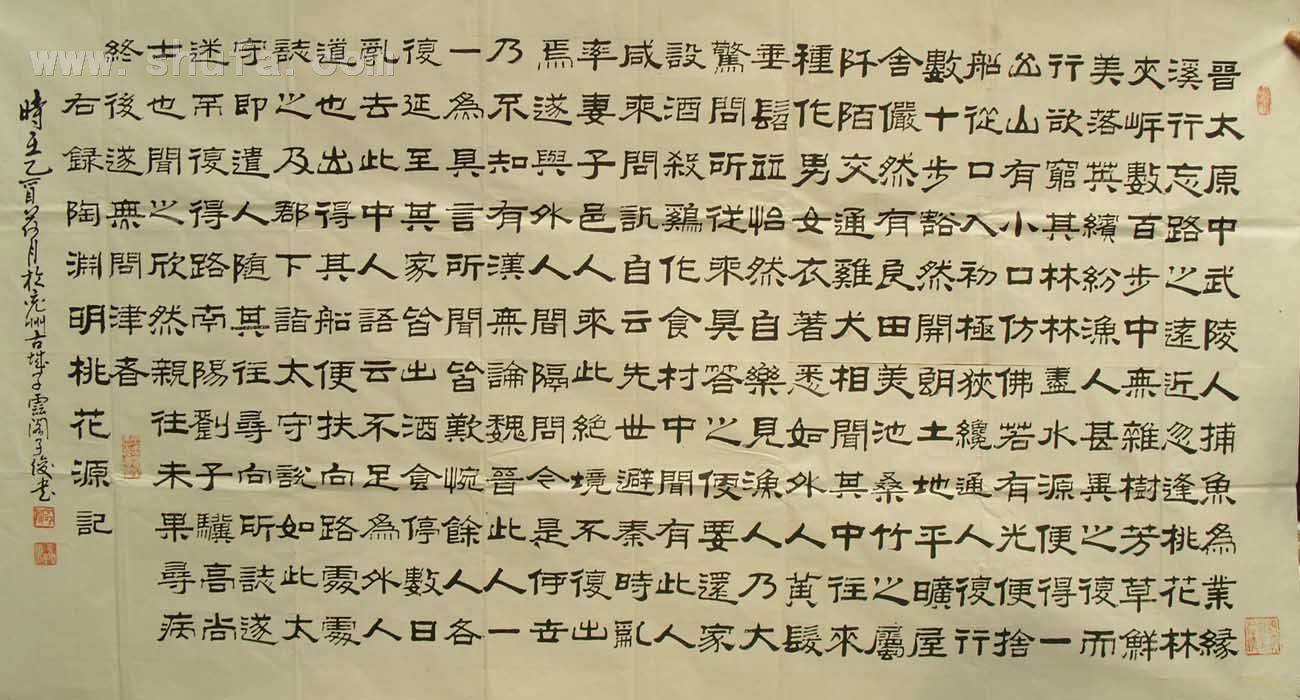 晉太原中武陵人捕魚為業緣
溪行忘路之遠近忽逢桃花林
夾岸數百步中無雜樹芳草鮮
美落英繽紛漁人甚異之復而
行欲窮其林林盡水源便得一
山山有小口仿佛若有光便捨
船從口入初極狹纔通人復行
數十步豁然開朗土地平曠屋
舍儼然有良田美池桑竹之屬
阡陌交通雞犬相聞其中往來
種作男女衣著悉如外人黃髮
垂髫並怡然自樂見漁人乃大
驚問所從來具答之便要還家
設酒殺鷄作食村中聞有此人
咸來問訊自云先世避秦時亂
率妻子邑人來此絕境不復出
焉遂與外人間隔問今是何世
乃不知有漢無論魏晉此人一
一為具言所聞皆歎惋餘人各
復延至其家皆出酒食停數日
辭去此中人語云不足為外人
道也出得其船便扶向路處處
誌之及郡下詣太守說如此太
守即遣人隨其往尋向所誌遂
迷不復得路南陽劉子驥高尚
士也聞之欣然親往未果尋病
終後遂無問津者
右錄陶淵明桃花源記
時至乙酉荷月於兗州古城子靈閣子俊書
www.shufa.com